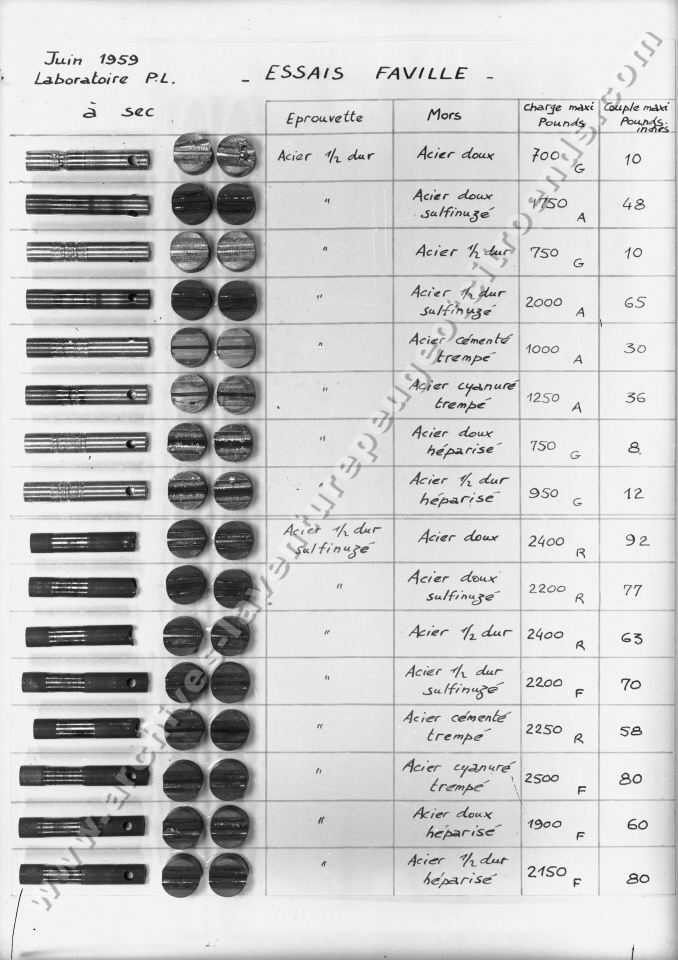 Juin 1959
Laboratoire P.L.
- ESSAIS FAVILLE -
à sec
Eprouvette Mors Charge maxi Pounds Couple maxi Pounds inches
Acier 1/2 dur Acier doux 700 G 10
" Acier doux sulfinuzé 1750 A 48
" Acier 1/2 dur 750 G 10
" Acier 1/2 dur sulfinuzé 2000 A 65
" Acier cémenté trempé 1000 A 30
" Acier cyanuré trempé 1250 A 36
" Acier doux héparisé 750 G 8
" Acier 1/2 dur héparisé 950 G 12
Acier 1/2 dur sulfinuzé Acier doux 2400 R 92
" Acier doux sulfinuzé 2200 R 77
" Acier 1/2 dur 2400 R 63
" Acier 1/2 dur sulfinuzé 2200 F 70
" Acier cémenté trempé 2250 R 58
" Acier cyanuré trempé 2500 F 80
" Acier doux héparisé 1900 F 60
" Acier 1/2 dur héparisé 2150 F 80
www.archives-laventurepeugeotcitroends.com